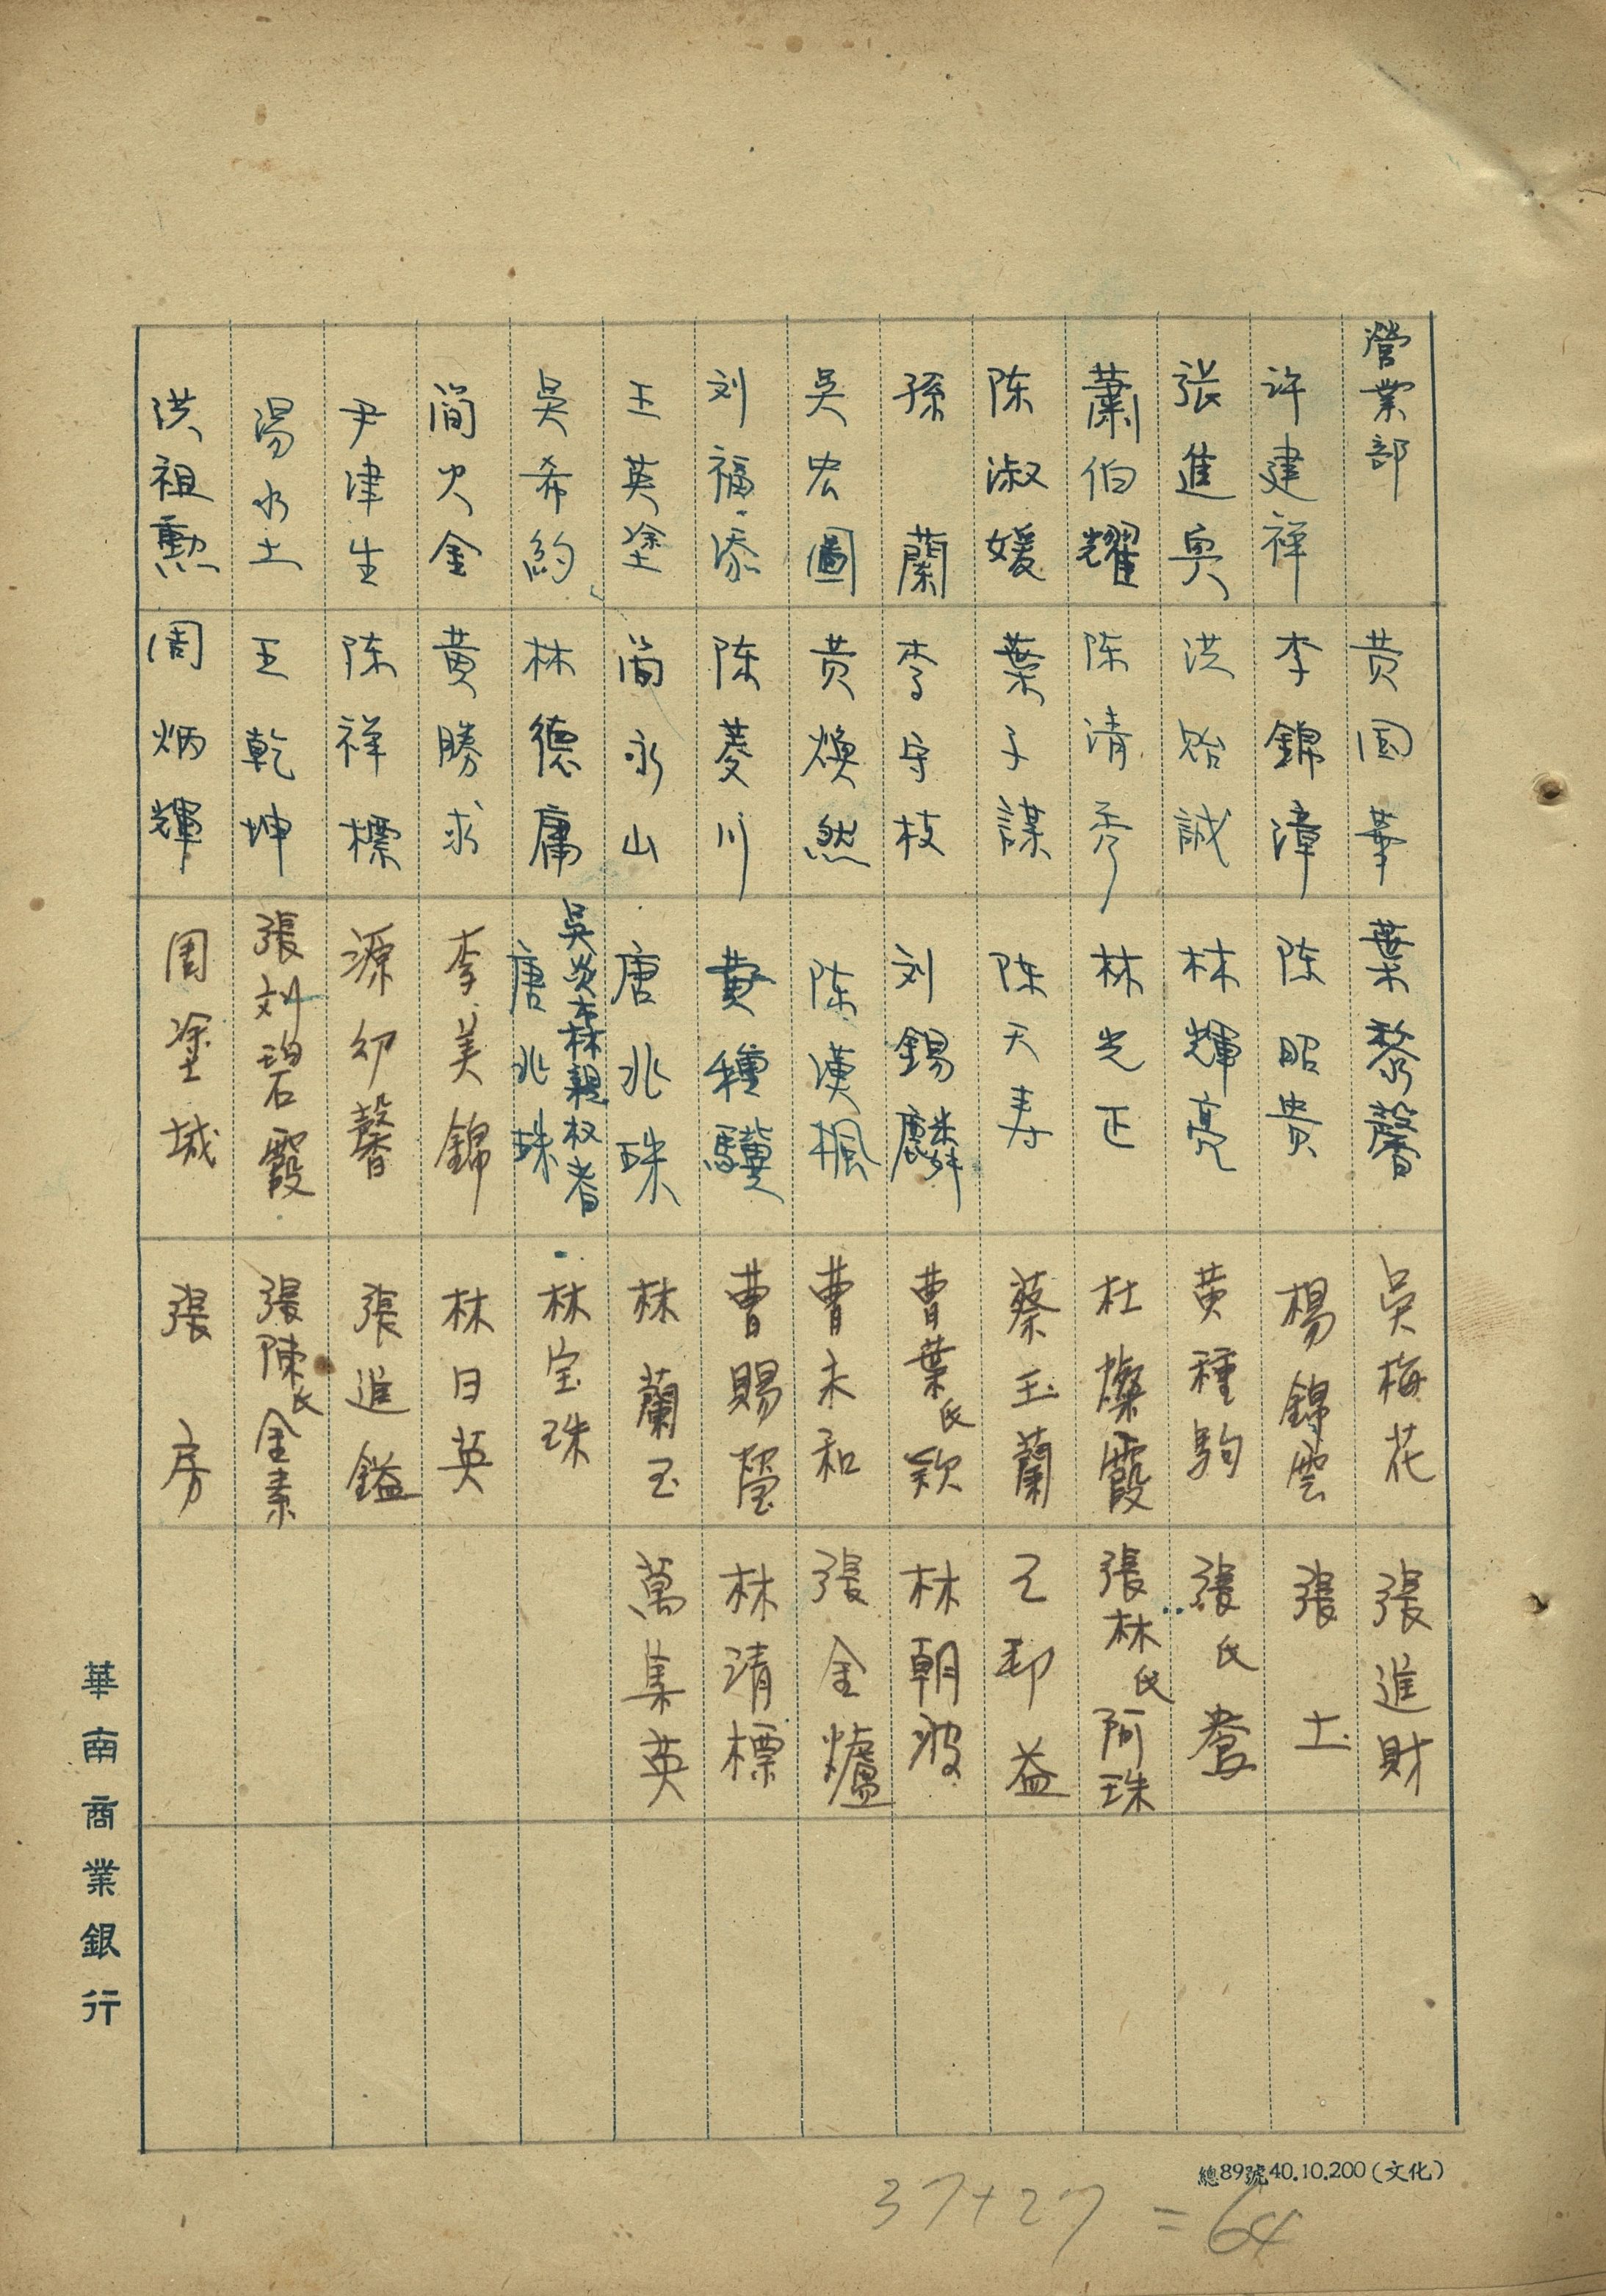 營業部
许建祥
張進興
蕭伯耀
陈淑媛
孫蘭
吳宏圖
刘福添
王英塗
吳希約
簡火金
尹津生
湯水土
洪祖勳
黄国華
李錦漳
洪貽誠
陈清秀
葉子謀
李守枝
黄煥然
陈菱川
簡永山
林德庸
黃勝求
陈祥標
王乾坤
周炳輝
葉黎馨
陈昭貴
林輝亮
林光正
陈天寿
刘錫麟
陈漢楓
黄種驥
唐兆珠
吳炎森親权者
唐兆珠
李美錦
源幼馨
張刘碧霞
周塗城
吳梅花
楊錦雲
黄種駒
杜燦霞
蔡玉蘭
曹葉氏欵
曹未和
曹賜瑩
林蘭玉
林宝珠
林日英
張進鎰
張陳氏金素
張房
張進財
張土
張氏鴦
張林氏阿珠
王却益
林朝波
張金爐
林清標
萬集英
華南商業銀行
總89號40.10.200(文化)
37+27=64